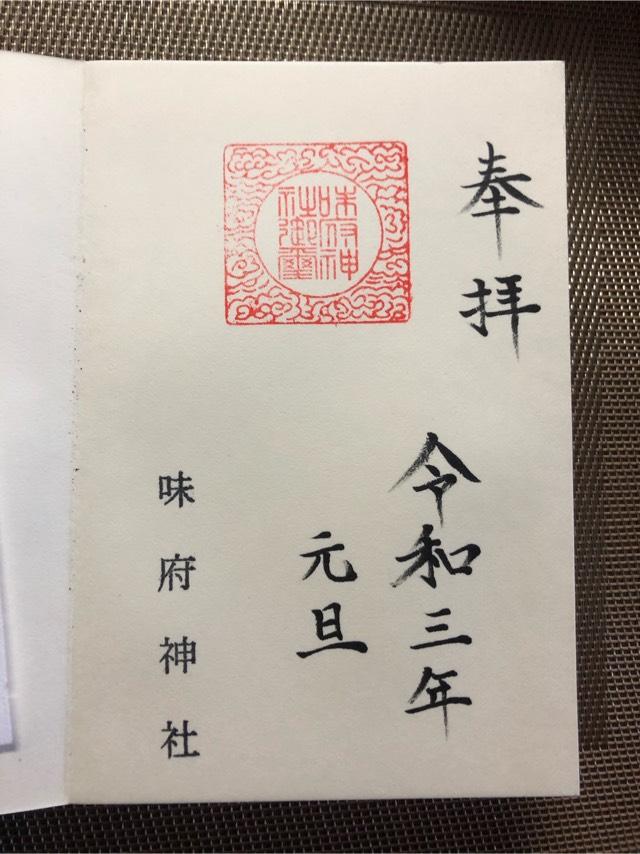 奉拝
令和三年
元旦
味府神社御璽
味府神社